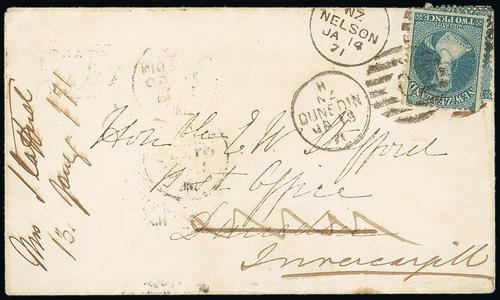 NZ
NELSON
JA 14
71
TWO PENCE
NEW ZEALAND
H
NZ
DUNEDIN
JA 18
71
Honble E W Stafford
Post Office
Dunedin
Invercargill
Mrs Stafford
13. Jany /71